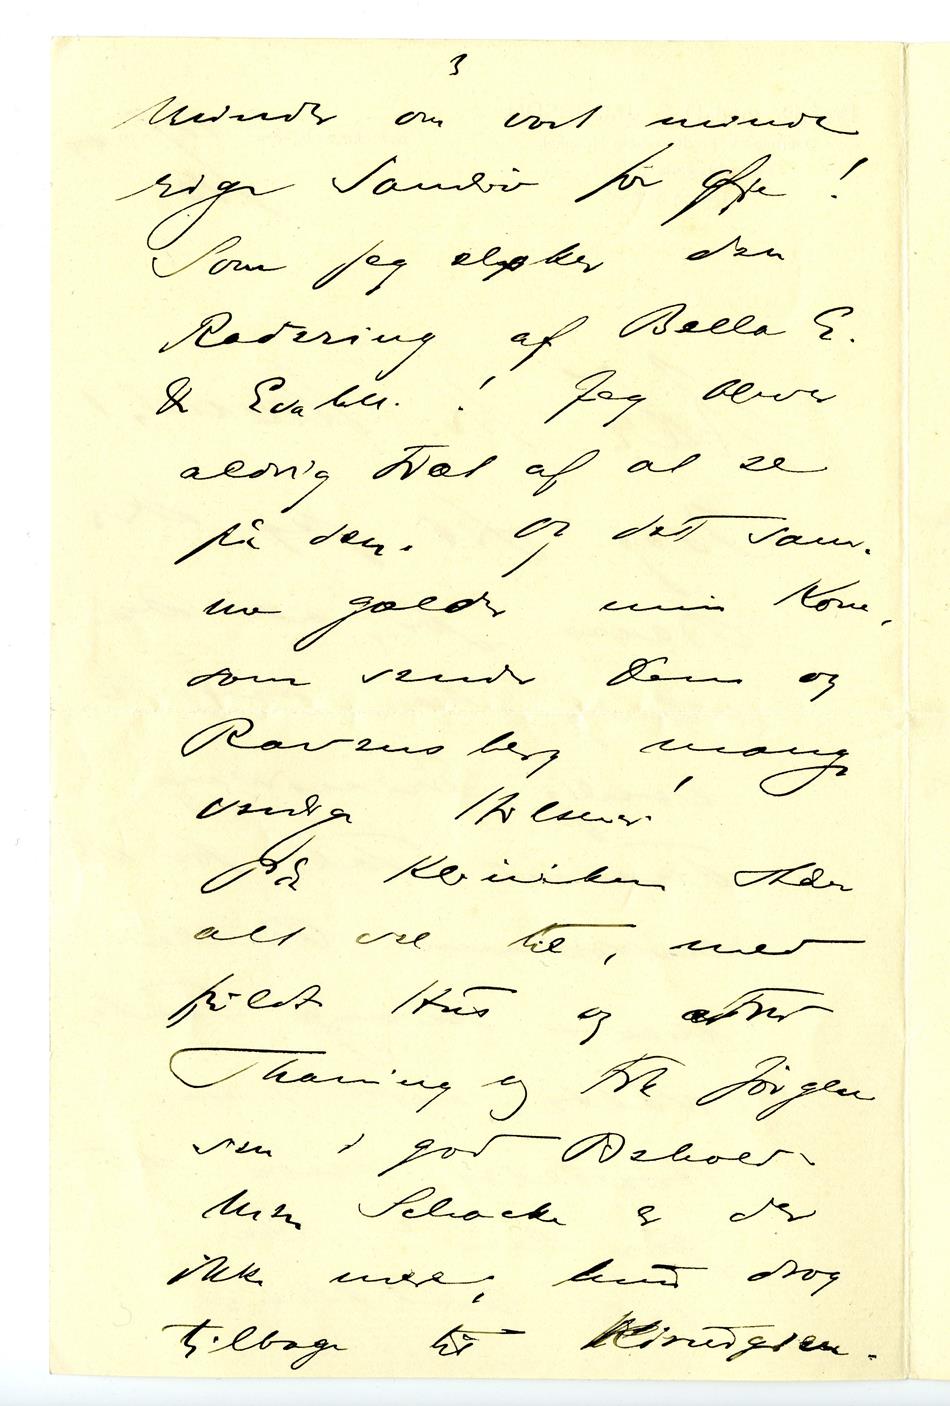 3
Minder om vort minde
rige Samliv for Øje!
Som jeg elsker den
Radering af Bella E.
& Eva ! Jeg bliver
aldrig træt af at se
på den. Og det sam-
me gælder min Kone,
som sender Dem og
Ravensberg mange
venlige Hilsener!
På Kliniken står
alt vel til, med
fyldt Hus og
Thaning og Frk Jörgen
sen i god Behold.
Men Schacke er der
ikke mere; hun drog
tilbage til Kirurgien.